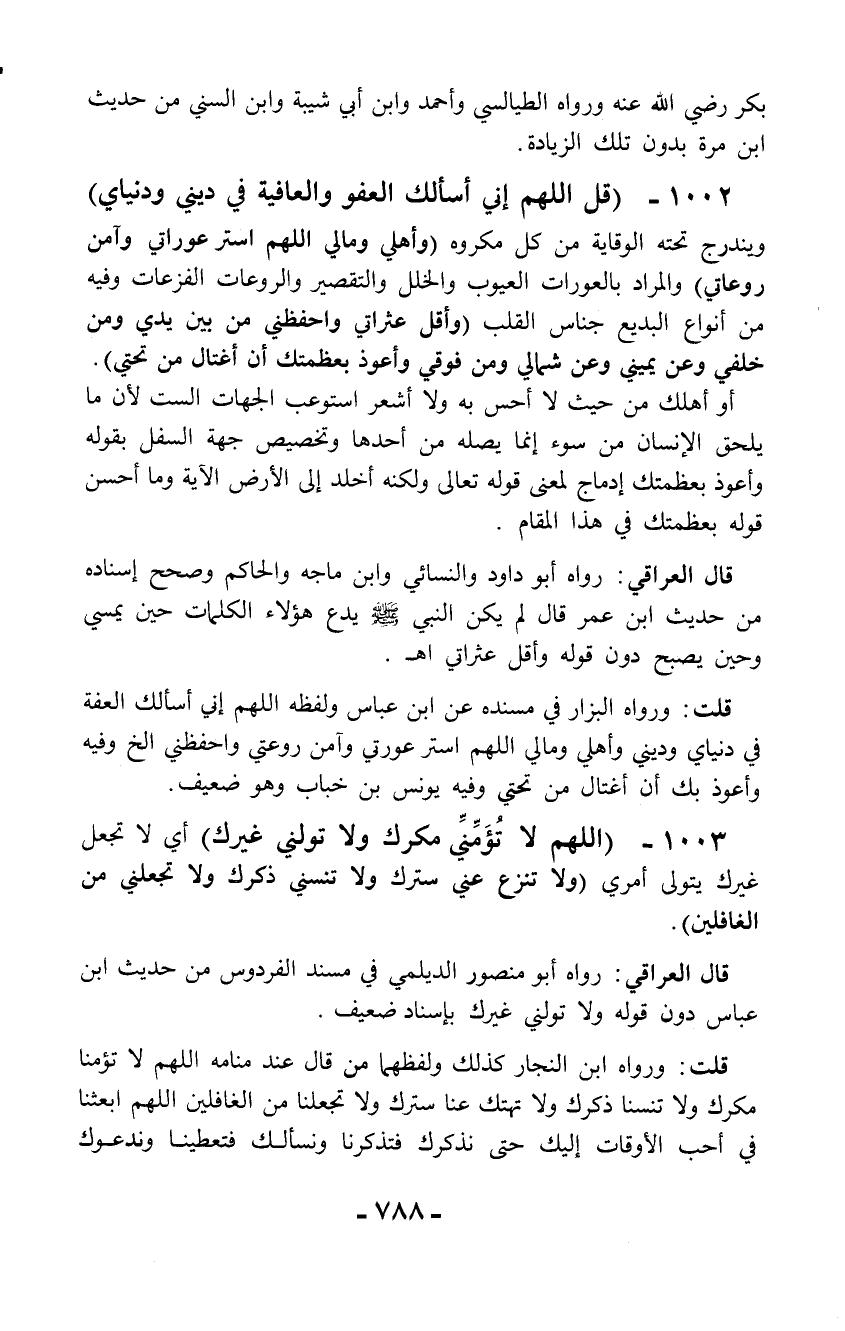 بكر رضي الله عنه ورواه الطيالسي وأحمد وابن أبي شيبة وابن السني من حديث
ابن مرة بدون تلك الزيادة.
١٠٠٢ - (قل اللهم إني أسألك العفو والعافية في ديني ودنياي)
ويندرج تحته الوقاية من كل مكروه (وأهلي ومالي اللهم استر عوراتي وآمن
روعاتي) والمراد بالعورات العيوب والخلل والتقصير والروعات الفزعات وفيه
من أنواع البديع جناس القلب (وأقل عثراتي واحفظني من بين يدي ومن
خلفي وعن يميني وعن شمالي ومن فوقي وأعوذ بعظمتك أن أغتال من تحتي).
أو أهلك من حيث لا أحس به ولا أشعر استوعب الجهات الست لأن ما
يلحق الإنسان من سوء إنما يصله من أحدها وتخصيص جهة السفل بقوله
وأعوذ بعظمتك إدماج لمعنى قوله تعالى ولكنه أخلد إلى الأرض الآية وما أحسن
قوله بعظمتك في هذا المقام .
قال العراقي: رواه أبو داود والنسائي وابن ماجه والحاكم وصحح إسناده
من حديث ابن عمر قال لم يكن النبي ﷺ يدع هؤلاء الكلمات حين يمسي
وحين يصبح دون قوله وأقل عثراتي اهـ .
قلت: ورواه البزار في مسنده عن ابن عباس ولفظه اللهم إني أسألك العفة
في دنياي وديني وأهلي ومالي اللهم استر عورتي وآمن روعتي واحفظني الخ وفيه
وأعوذ بك أن أغتال من تحتي وفيه يونس بن خباب وهو ضعيف.
١٠٠٣ - (اللهم لا تُؤَمِّنِّي مكرك ولا تولني غيرك) أي لا تجعل
غيرك يتولى أمري (ولا تنزع عني سترك ولا تنسني ذكرك ولا تجعلني من
الغافلين).
قال العراقي: رواه أبو منصور الديلمي في مسند الفردوس من حديث ابن
عباس دون قوله ولا تولني غيرك بإسناد ضعيف .
قلت: ورواه ابن النجار كذلك ولفظهما من قال عند منامه اللهم لا تؤمنا
مكرك ولا تنسنا ذكرك ولا تهتك عنا سترك ولا تجعلنا من الغافلين اللهم ابعثنا
في أحب الأوقات إليك حتى نذكرك فتذكرنا ونسألك فتعطينا وندعوك
- ٧٨٨ -